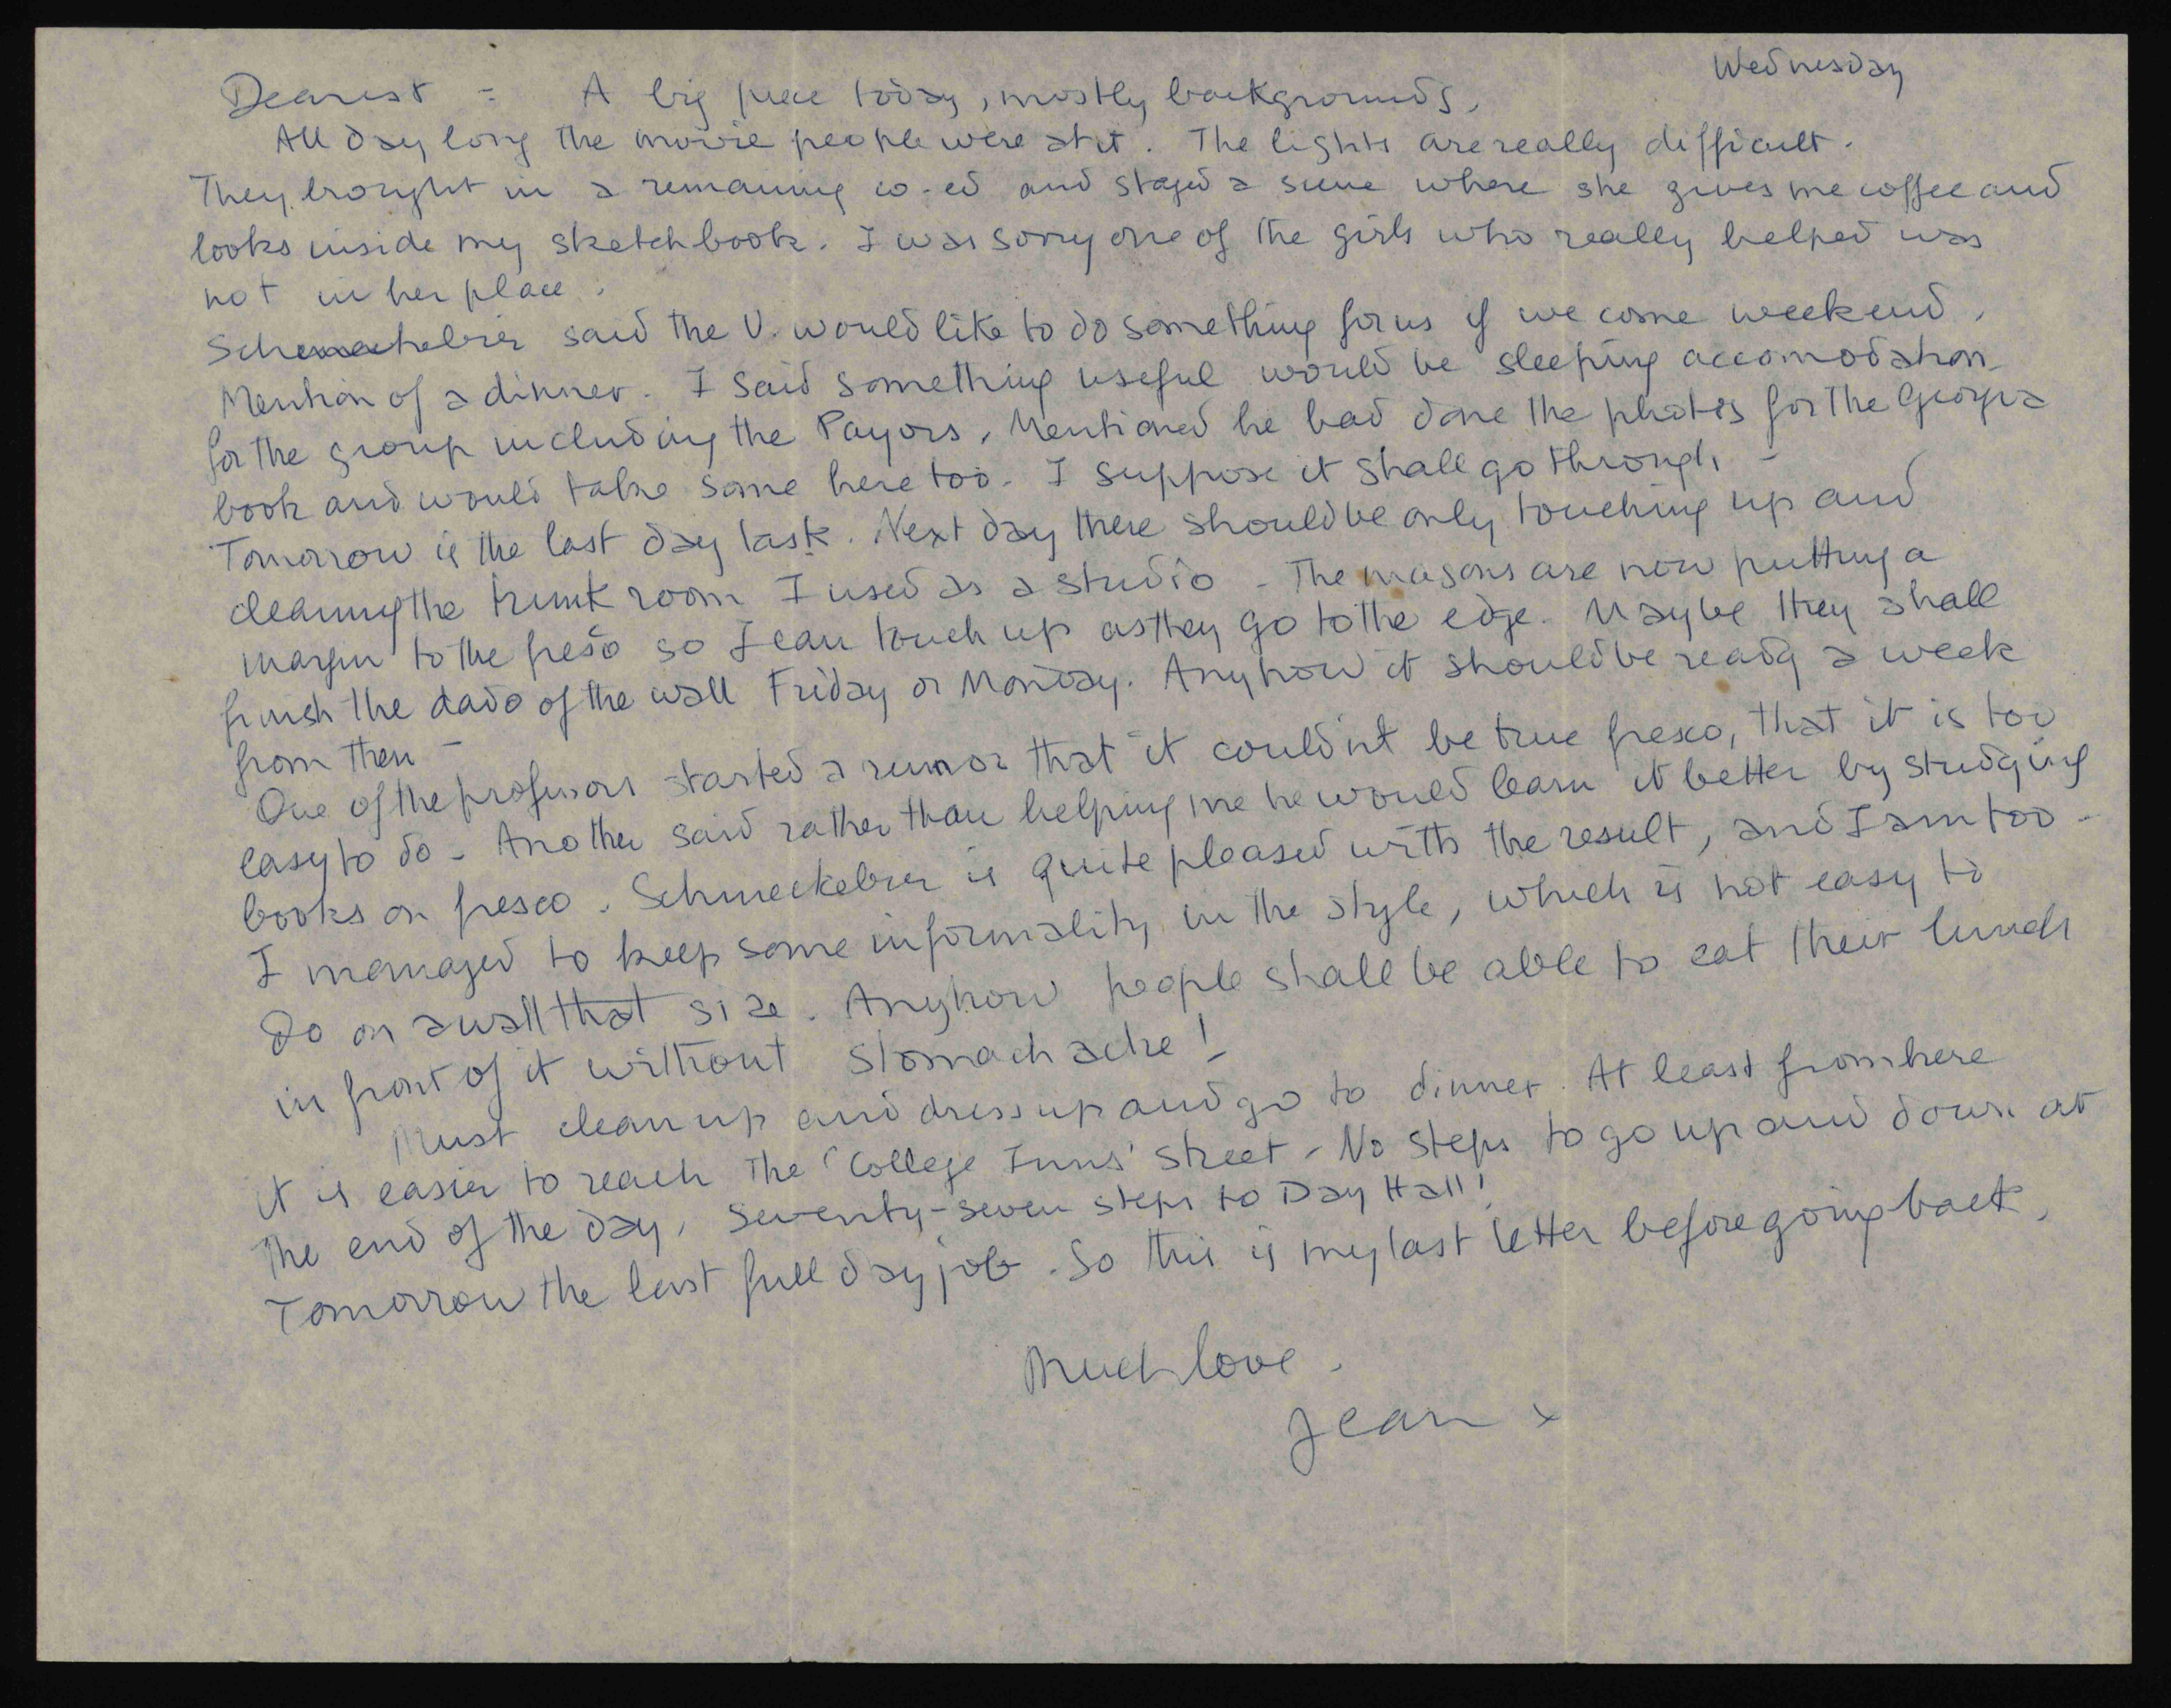 Wednesday
Dearest = A big piece today, mostly backgrounds.
All day long the movie people were at it. The lights are really difficult.
They brought in a remaining co-ed and staged a scene where she gives me coffee and
looks inside my sketchbook. I was sorry one of the girls who really helped was
not in her place.
said the U. would like to do something for us if we come weekend.
Mention of a dinner. I said something useful would be sleeping accomodation
for the group including the Payors. Mentioned he had done the photos for the Georgia
book and would take some here too. I suppose it shall go through -
Tomorrow is the last day task. Next day there should be only touching up and
cleaning the trunk room I used as a studio - The masons are now putting a
margin to the fresco so I can touch up as they go to the edge. Maybe they shall
finish the dado of the wall Friday or Monday. Anyhow it should be ready a week
from then -
One of the professors started a rumor that it couldn't be true fresco, that it is too
easy to do - Another said rather than helping me he would learn it better by studying
books on fresco. Schmeckebier is quite pleased with the result, and I am too -
I managed to keep some informality in the style, which is not easy to
do on a wall that size. Anyhow people shall be able to eat their lunch
in front of it without stomach ache!
Must clean up and dress up and go to dinner. At least from here
it is easier to reach the 'College Inns' street - No steps to go up and down at
the end of the day, seventy-seven steps to Day Hall!
Tomorrow the last full day job. So this is my last letter before going back.
Much love.
Jean x